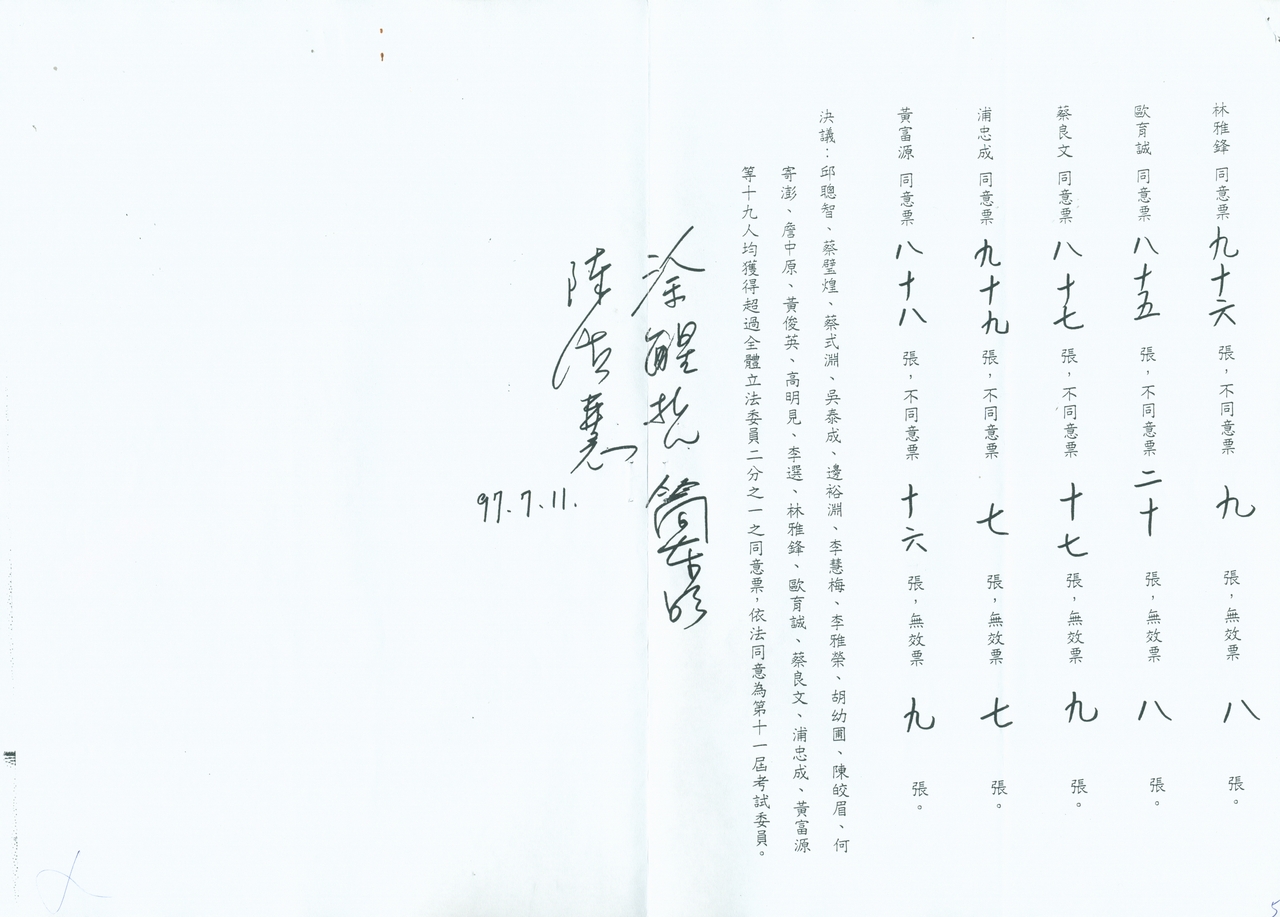 林雅鋒 同意票 九十六 張，不同意票 九 張，無效票 八 張。
歐育誠 同意票 八十五 張，不同意票 二十 張，無效票 八 張。
蔡良文 同意票 八十七 張，不同意票 十七 張，無效票 九 張。
浦忠成 同意票 九十九 張，不同意票 七 張，無效票 七 張。
黃富源 同意票 八十八 張，不同意票 十六 張，無效票 九 張。
決議：邱聰智、蔡璧煌、蔡式淵、吳泰成、邊裕淵、李慧梅、李雅榮、胡幼圃、陳皎眉、何
寄澎、詹中原、黃俊英、高明見、李選、林雅鋒、歐育誠、蔡良文、浦忠成、黃富源
等十九人均獲得超過全體立法委員二分之一之同意票，依法同意為第十一屆考試委員。
涂醒哲 簡東明
陳淑慧
97.7.11.